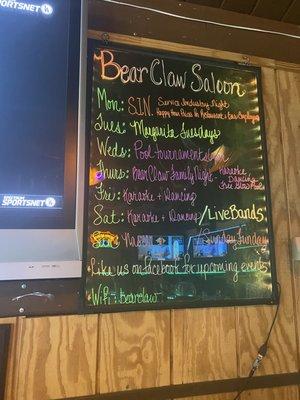 SPORTSNET
SPORTSNET
Bear Claw Saloon
Mon: S.I.N. Service Industry Night
Happy Hour Prices for Restaurant + Bar Employees
Tues: Margarita Tuesdays
Weds: Pool tournament
Thurs: Bear Claw Family Night Karaoke
Dancing
Free Slow Pools
Fri: Karaoke + Dancing
Sat: Karaoke + Dancing /Live Bands
Sun: /Sunday Funday
Like us on facebook for upcoming events
Wifi: bearclaw